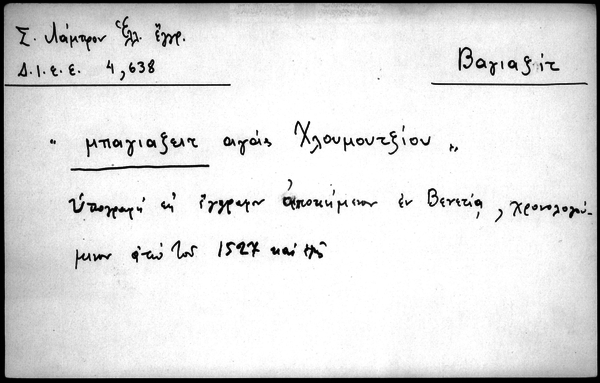 Σ. Λάμπρου Ἑλλ. ἔγγρ.
Δ.Ι.Ε.Ε. 4,638
Βαγιαζίτ
"μπαγιαζειτ αγάς Χλουμουτζίου"
Ὑπογραφή εἰς ἔγγραφον ἀποκείμενον ἐν Βενετίᾳ, χρονολογού-
μενον ἀπό τοῦ 1527 καὶ ἑξῆς